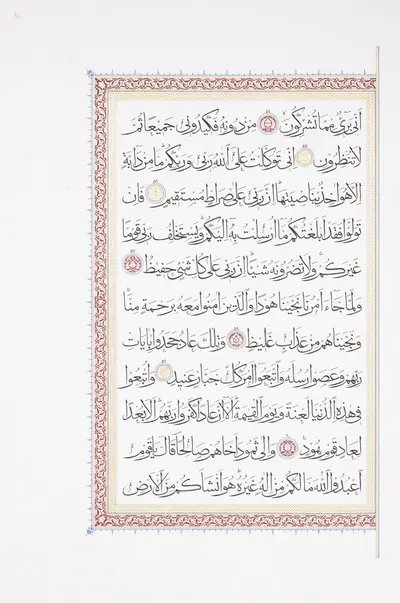 أني بريء مما تشركون من دونه فكيدوني جميعا ثم
لا تنظرون إني توكلت على الله ربي وربكم ما من دابة
إلا هو آخذ بناصيتها إن ربي على صراط مستقيم فإن
تولوا فقد أبلغتكم ما أرسلت به إليكم ويستخلف ربي قوما
غيركم ولا تضرونه شيئا إن ربي على كل شيء حفيظ
ولما جاء أمرنا نجينا هودا والذين آمنوا معه برحمة منا
ونجيناهم من عذاب غليظ وتلك عاد جحدوا بآيات
ربهم وعصوا رسله واتبعوا أمر كل جبار عنيد وأتبعوا
في هذه الدنيا لعنة ويوم القيمة ألا إن عادا كفروا ربهم ألا بعدا
لعاد قوم هود وإلى ثمود أخاهم صالحا قال يا قوم
اعبدوا الله ما لكم من إله غيره هو أنشأكم من الأرض